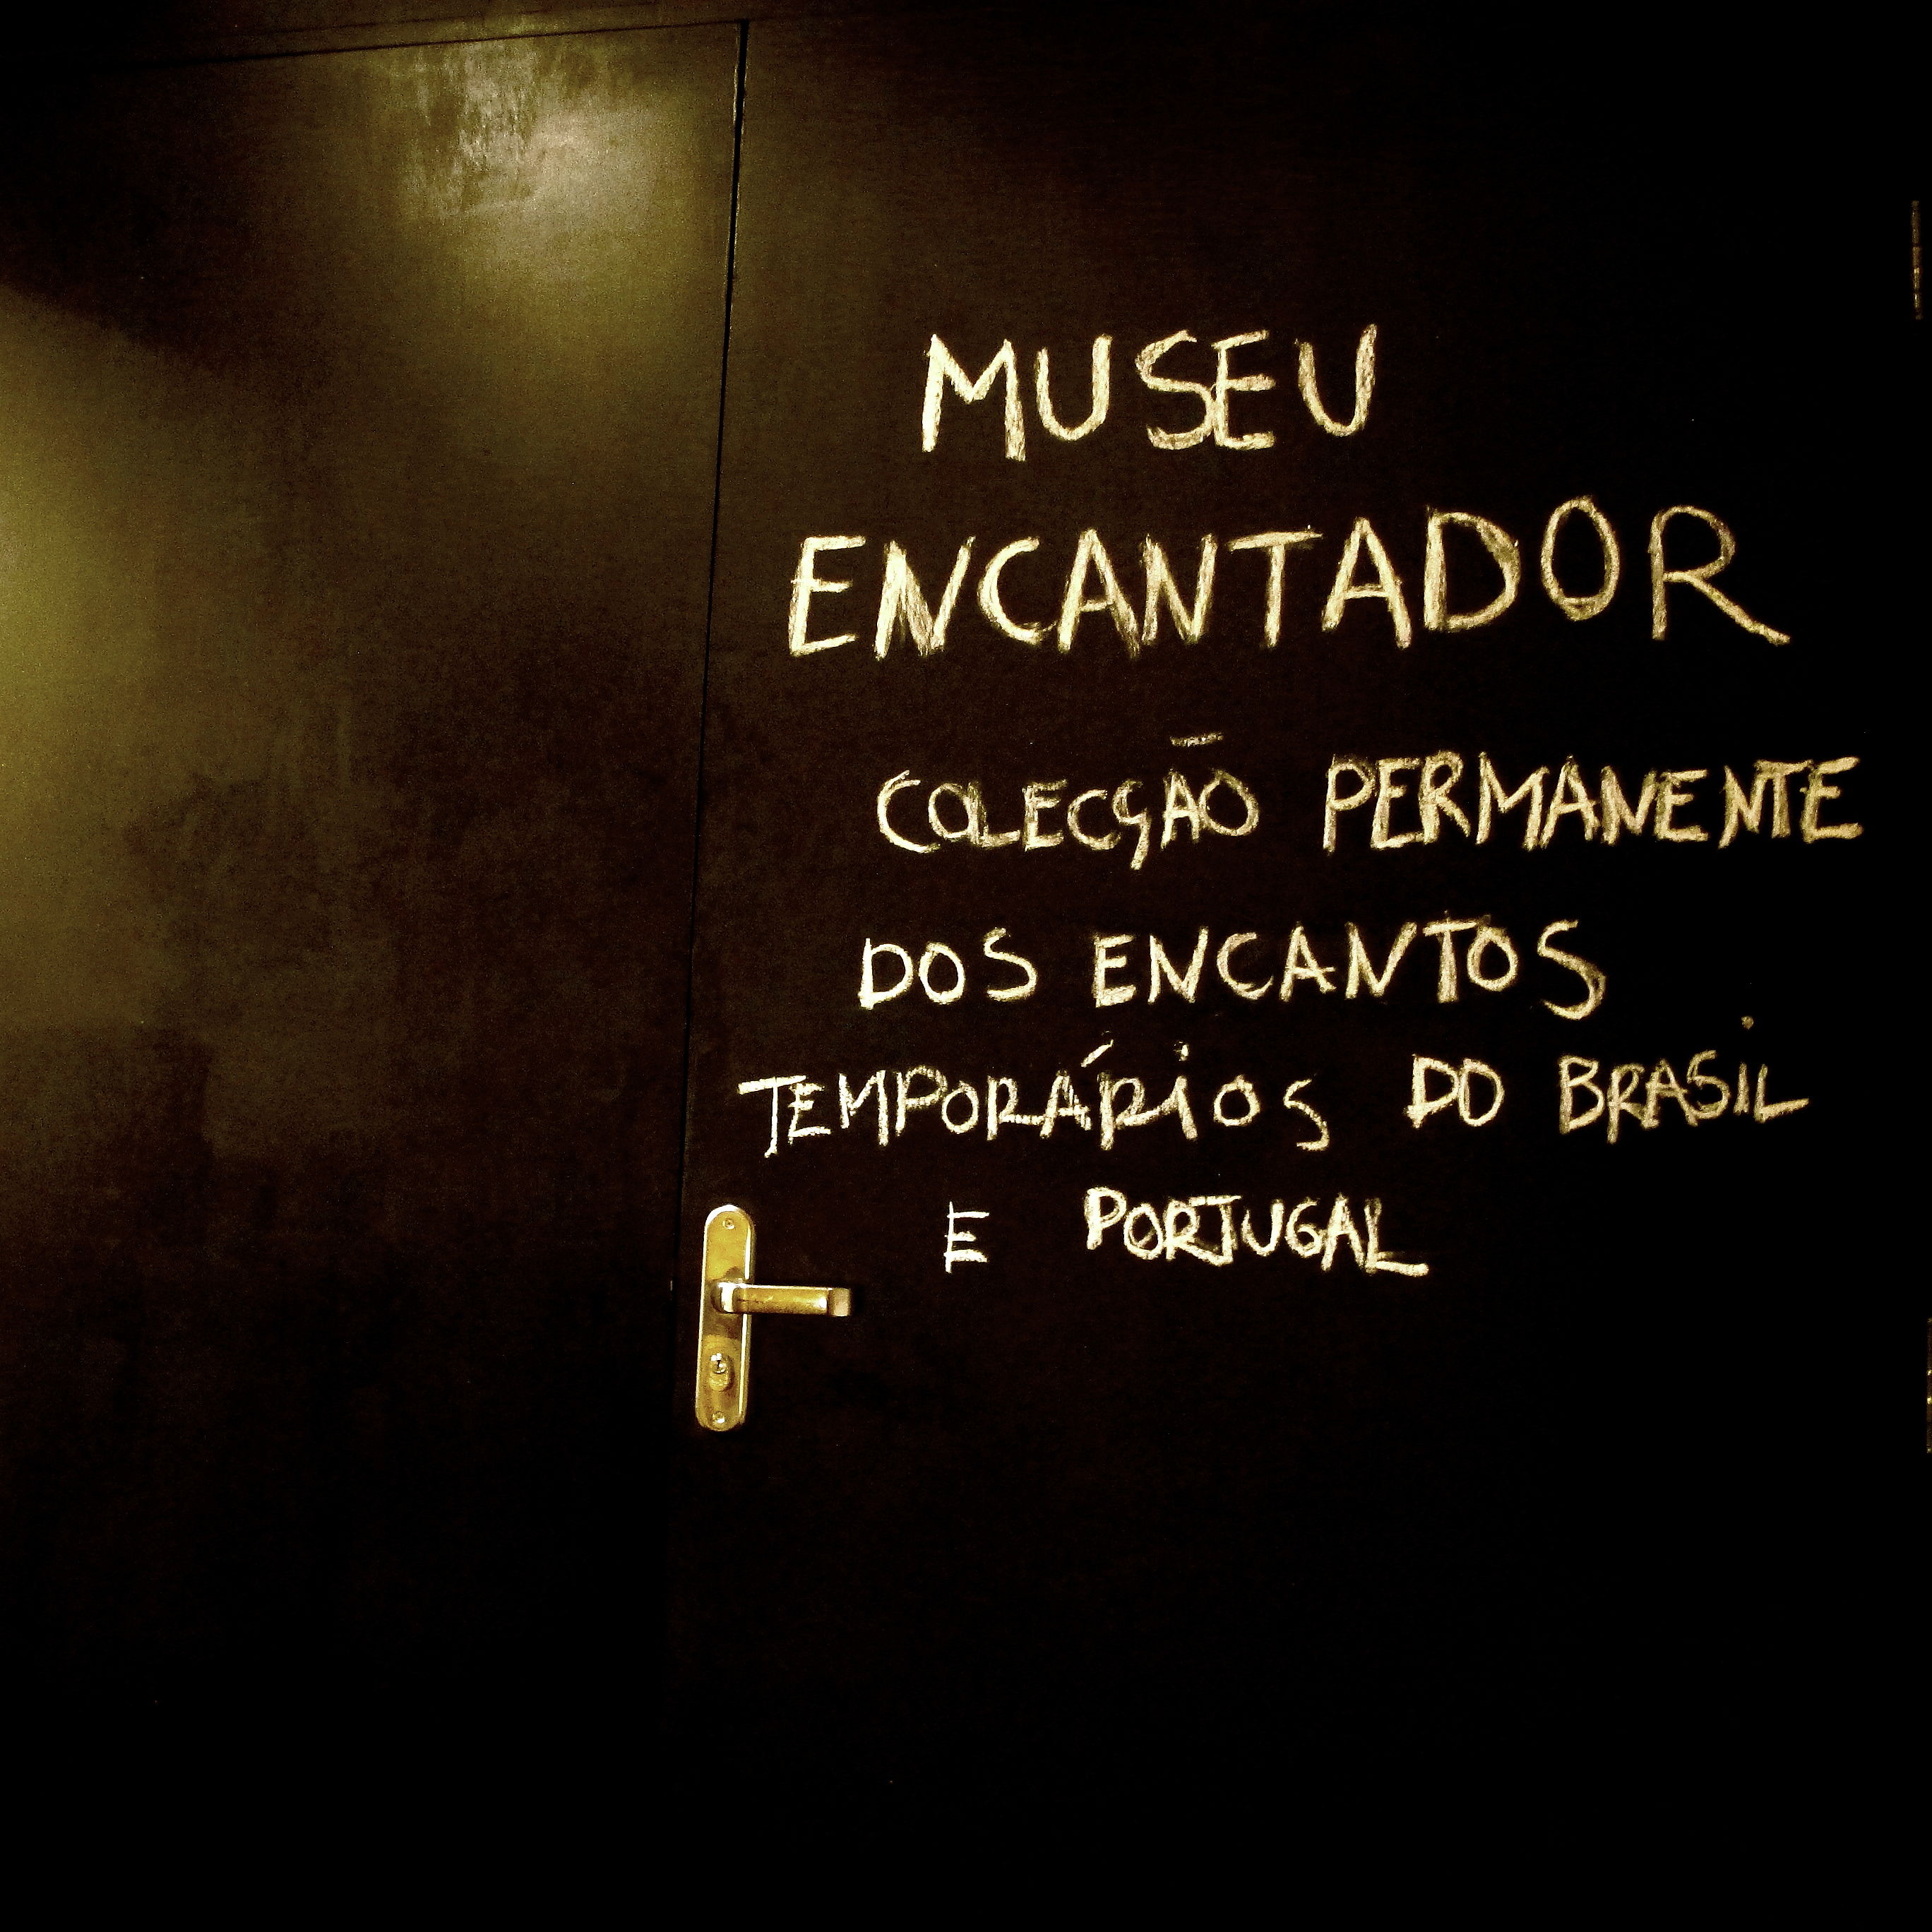 MUSEU
ENCANTADOR
COLECÇÃO PERMANENTE
DOS ENCANTOS
TEMPORÁRIOS DO BRASIL
E PORTUGAL